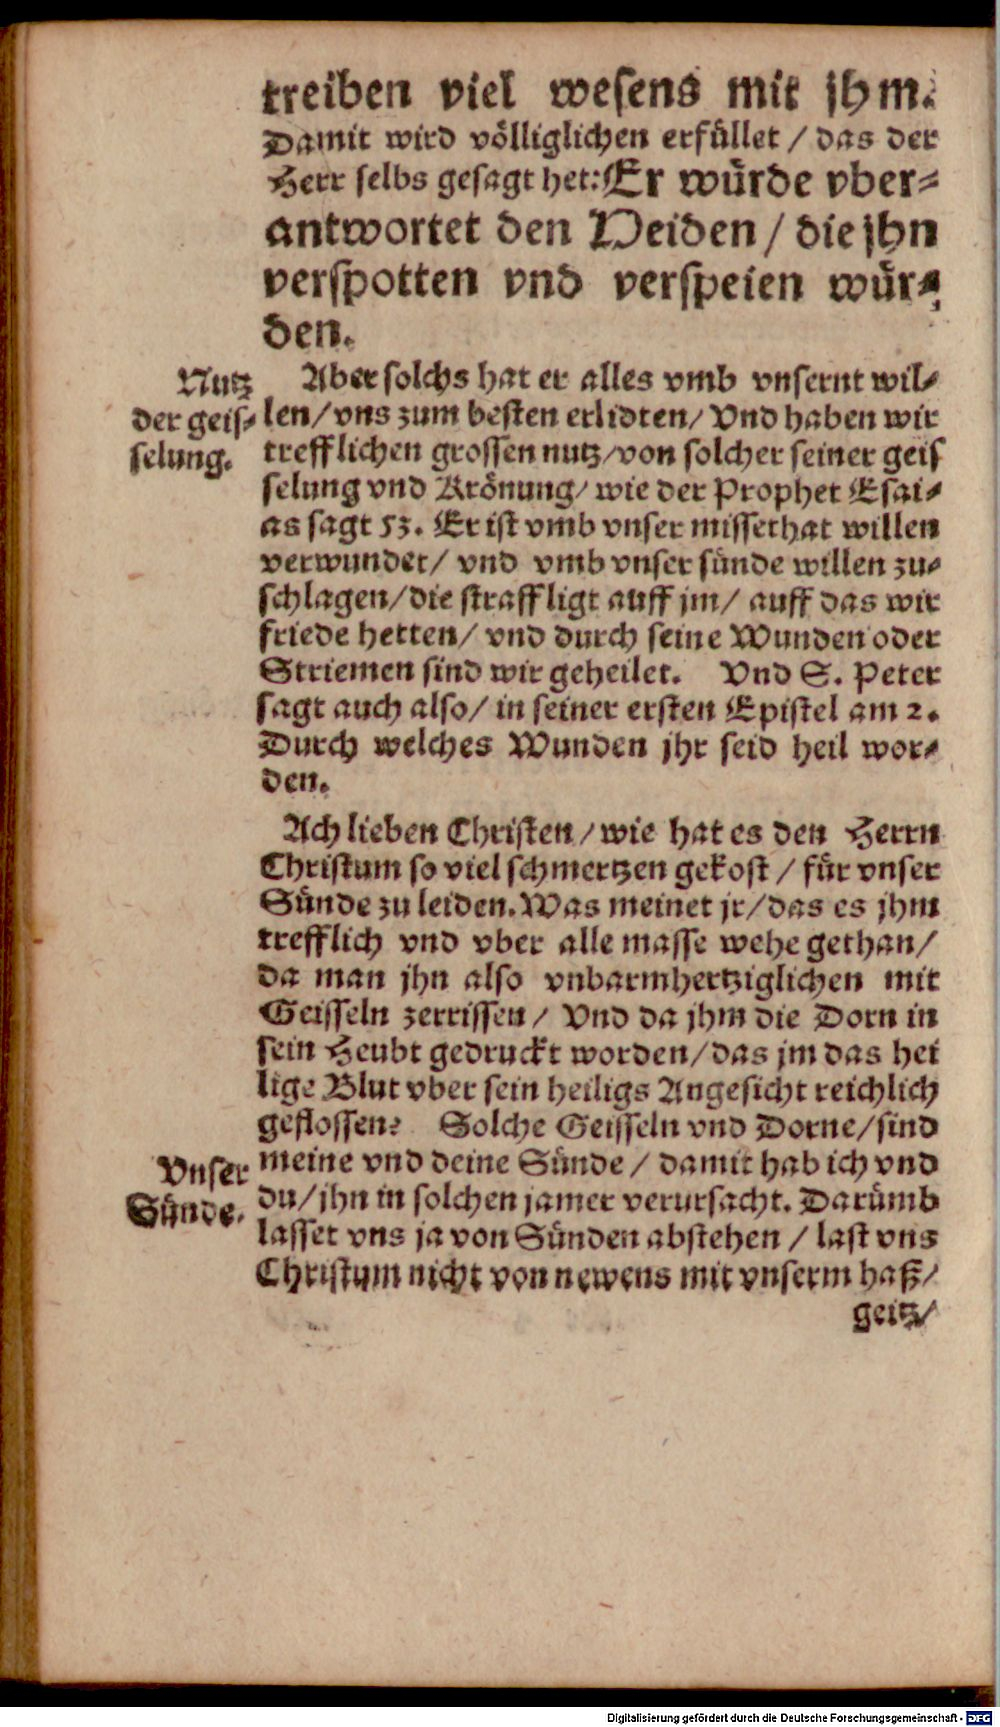 treiben viel wesens mit jhm.
Damit wird völliglichen erfüllet / das der
Herr selbs gesagt het: Er würde vber-
antwortet den Heiden / die jhn
verspotten vnd verspeien wür-
den.
Nutz
der geis-
selung.
Aber solchs hat er alles vmb vnsernt wil-
len / vns zum besten erlidten / Vnd haben wir
trefflichen grossen nutz / von solcher seiner geis
selung vnd Krönung / wie der Prophet Esai-
as sagt 53. Er ist vmb vnser missethat willen
verwundet / vnd vmb vnser sünde willen zu-
schlagen / die straff ligt auff jm / auff das wir
friede hetten / vnd durch seine Wunden oder
Striemen sind wir geheilet. Vnd S. Peter
sagt auch also / in seiner ersten Epistel am 2.
Durch welches Wunden jhr seid heil wor-
den.
Ach lieben Christen / wie hat es den Herrn
Christum so viel schmertzen gekost / für vnser
Sünde zu leiden. Was meinet jr / das es jhm
trefflich vnd vber alle masse wehe gethan /
da man jhn also vnbarmhertziglichen mit
Geisseln zerrissen / Vnd da jhm die Dorn in
sein Heubt gedruckt worden / das jm das hei
lige Blut vber sein heiligs Angesicht reichlich
geflossen? Solche Geisseln vnd Dorne / sind
meine vnd deine Sünde / damit hab ich vnd
du / jhn in solchen jamer verursacht. Darümb
lasset vns ja von Sünden abstehen / last vns
Christum nicht von newens mit vnserm haß /
Vnser
Sünde.
geitz /
Digitalisierung gefördert durch die Deutsche Forschungsgemeinschaft - DFG